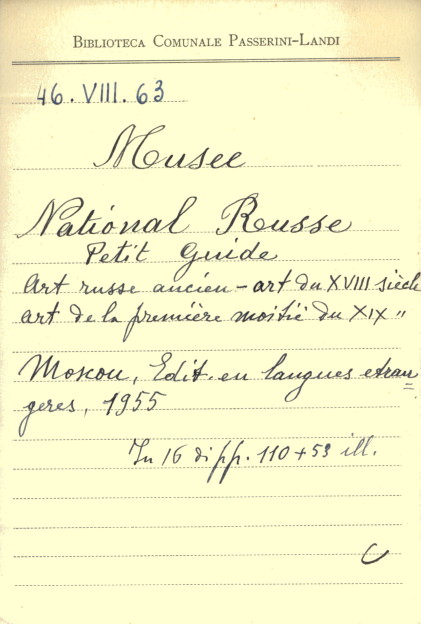 BIBLIOTECA COMUNALE PASSERINI-LANDI
46. VIII. 63
Musee
National Russe
Petit Guide
Art russe ancien - art du XVIII siècle
art de la première moitié du XIX "
Moscou, Edit. en langues etran=
geres, 1955
In 16 di pp. 110+53 ill.
C